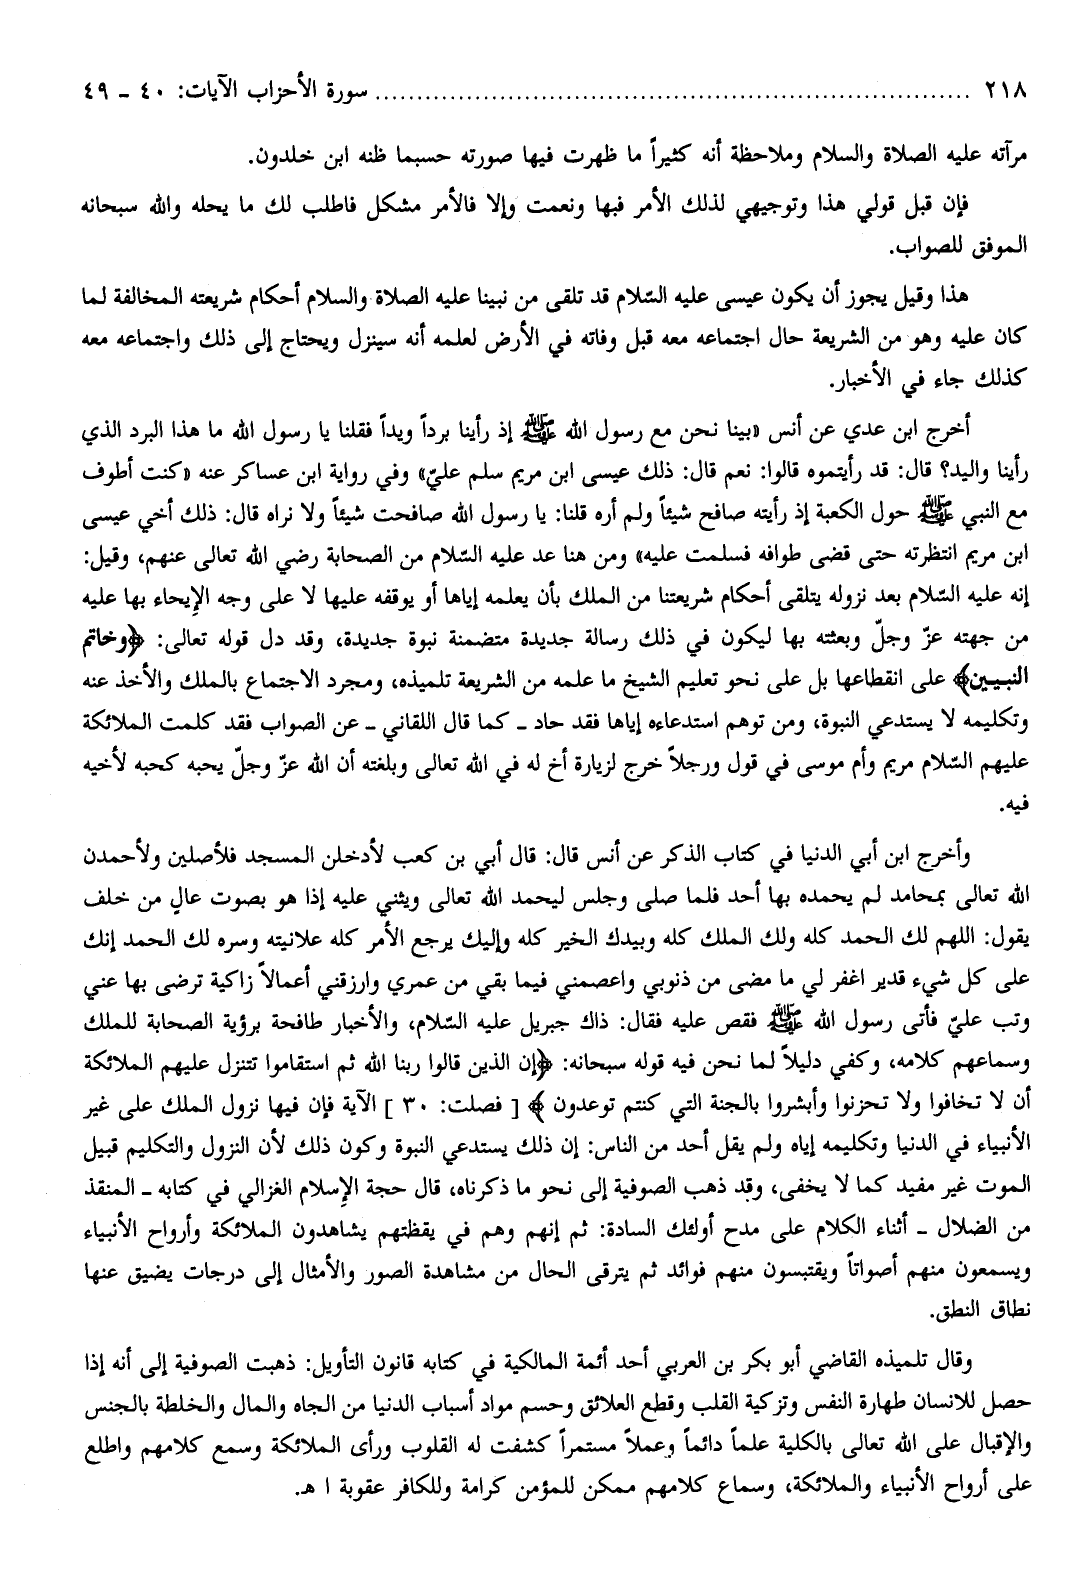 ٢١٨ ........................................................................ سورة الأحزاب الآيات: ٤٠ ـ ٤٩
مرآته عليه الصلاة والسلام وملاحظة أنه كثيراً ما ظهرت فيها صورته حسبما ظنه ابن خلدون.
فإن قبل قولي هذا وتوجيهي لذلك الأمر فبها ونعمت وإلا فالأمر مشكل فاطلب لك ما يحله والله سبحانه
الموفق للصواب.
هذا وقيل يجوز أن يكون عيسى عليه السّلام قد تلقى من نبينا عليه الصلاة والسلام أحكام شريعته المخالفة لما
كان عليه وهو من الشريعة حال اجتماعه معه قبل وفاته في الأرض لعلمه أنه سينزل ويحتاج إلى ذلك واجتماعه معه
كذلك جاء في الأخبار.
أخرج ابن عدي عن أنس «بينا نحن مع رسول الله ﷺ إذ رأينا برداً ويداً فقلنا يا رسول الله ما هذا البرد الذي
رأينا واليد؟ قال: قد رأيتموه قالوا: نعم قال: ذلك عيسى ابن مريم سلم عليّ» وفي رواية ابن عساكر عنه «كنت أطوف
مع النبي ﷺ حول الكعبة إذ رأيته صافح شيئاً ولم أره قلنا: يا رسول الله صافحت شيئاً ولا نراه قال: ذلك أخي عيسى
ابن مريم انتظرته حتى قضى طوافه فسلمت عليه» ومن هنا عد عليه السّلام من الصحابة رضي الله تعالى عنهم، وقيل:
إنه عليه السّلام بعد نزوله يتلقى أحكام شريعتنا من الملك بأن يعلمه إياها أو يوقفه عليها لا على وجه الإيحاء بها عليه
من جهته عزّ وجلّ وبعثته بها ليكون في ذلك رسالة جديدة متضمنة نبوة جديدة، وقد دل قوله تعالى: ﴿وخاتم
النبيين﴾ على انقطاعها بل على نحو تعليم الشيخ ما علمه من الشريعة تلميذه، ومجرد الاجتماع بالملك والأخذ عنه
وتكليمه لا يستدعي النبوة، ومن توهم استدعاءه إياها فقد حاد ـ كما قال اللقاني ـ عن الصواب فقد كلمت الملائكة
عليهم السّلام مريم وأم موسى في قول ورجلاً خرج لزيارة أخ له في الله تعالى وبلغته أن الله عزّ وجلّ يحبه كحبه لأخيه
فيه.
وأخرج ابن أبي الدنيا في كتاب الذكر عن أنس قال: قال أبي بن كعب لأدخلن المسجد فلأصلين ولأحمدن
الله تعالى بمحامد لم يحمده بها أحد فلما صلى وجلس ليحمد الله تعالى ويثني عليه إذا هو بصوت عالٍ من خلف
يقول: اللهم لك الحمد كله ولك الملك كله وبيدك الخير كله وإليك يرجع الأمر كله علانيته وسره لك الحمد إنك
على كل شيء قدير اغفر لي ما مضى من ذنوبي واعصمني فيما بقي من عمري وارزقني أعمالاً زاكية ترضى بها عني
وتب عليّ فأتى رسول الله ﷺ فقص عليه فقال: ذاك جبريل عليه السّلام، والأخبار طافحة برؤية الصحابة للملك
وسماعهم كلامه، وكفي دليلاً لما نحن فيه قوله سبحانه: ﴿إن الذين قالوا ربنا الله ثم استقاموا تتنزل عليهم الملائكة
أن لا تخافوا ولا تحزنوا وأبشروا بالجنة التي كنتم توعدون ﴾ [ فصلت: ٣٠ ] الآية فإن فيها نزول الملك على غير
الأنبياء في الدنيا وتكليمه إياه ولم يقل أحد من الناس: إن ذلك يستدعي النبوة وكون ذلك لأن النزول والتكليم قبيل
الموت غير مفيد كما لا يخفى، وقد ذهب الصوفية إلى نحو ما ذكرناه، قال حجة الإسلام الغزالي في كتابه ـ المنقذ
من الضلال ـ أثناء الكلام على مدح أولئك السادة: ثم إنهم وهم في يقظتهم يشاهدون الملائكة وأرواح الأنبياء
ويسمعون منهم أصواتاً ويقتبسون منهم فوائد ثم يترقى الحال من مشاهدة الصور والأمثال إلى درجات يضيق عنها
نطاق النطق.
وقال تلميذه القاضي أبو بكر بن العربي أحد أئمة المالكية في كتابه قانون التأويل: ذهبت الصوفية إلى أنه إذا
حصل للانسان طهارة النفس وتزكية القلب وقطع العلائق وحسم مواد أسباب الدنيا من الجاه والمال والخلطة بالجنس
والإقبال على الله تعالى بالكلية علماً دائماً وعملاً مستمراً كشفت له القلوب ورأى الملائكة وسمع كلامهم واطلع
على أرواح الأنبياء والملائكة، وسماع كلامهم ممكن للمؤمن كرامة وللكافر عقوبة ا هـ.